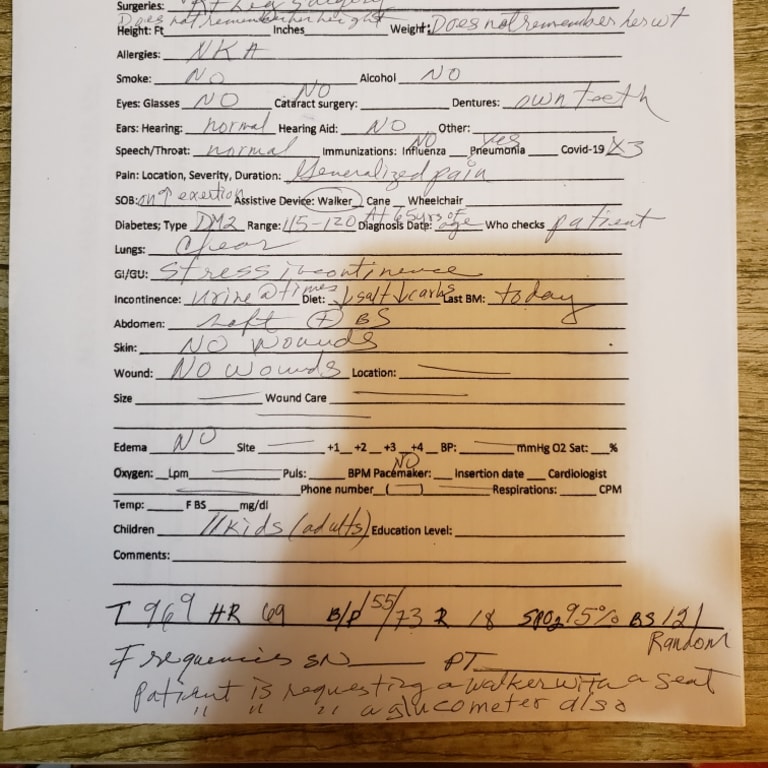 Surgeries: Rt Leg Surgery
Does not remember her height
Height: Ft Inches Weight: Does not remember her wt
Allergies: NKA
Smoke: NO Alcohol NO
Eyes: Glasses NO Cataract surgery: NO Dentures: own teeth
Ears: Hearing: normal Hearing Aid: NO Other:
Speech/Throat: normal Immunizations: Influenza NO Pneumonia Yes Covid-19 X3
Pain: Location, Severity, Duration: Generalized pain
SOB: on ↑ exertion Assistive Device: Walker Cane Wheelchair
Diabetes; Type DM2 Range: 115-120 Diagnosis Date: At 65yrs of age Who checks patient
Lungs: Clear
GI/GU: Stress incontinence
Incontinence: urine @ times Diet: ↓salt ↓carbs Last BM: today
Abdomen: soft (+) BS
Skin: NO wounds
Wound: NO wounds Location:
Size Wound Care
Edema NO Site +1 +2 +3 +4 BP: mmHg O2 Sat: %
Oxygen: Lpm Puls: BPM Pacemaker: NO Insertion date Cardiologist
Phone number ( ) Respirations: CPM
Temp: F BS mg/dl
Children 11 kids (adults) Education Level:
Comments:
T 969 HR 69 B/P 155/73 R 18 SPO2 95% BS 121
Random
Frequencies SN PT
Patient is requesting a walker with a seat
" " " a glucometer also